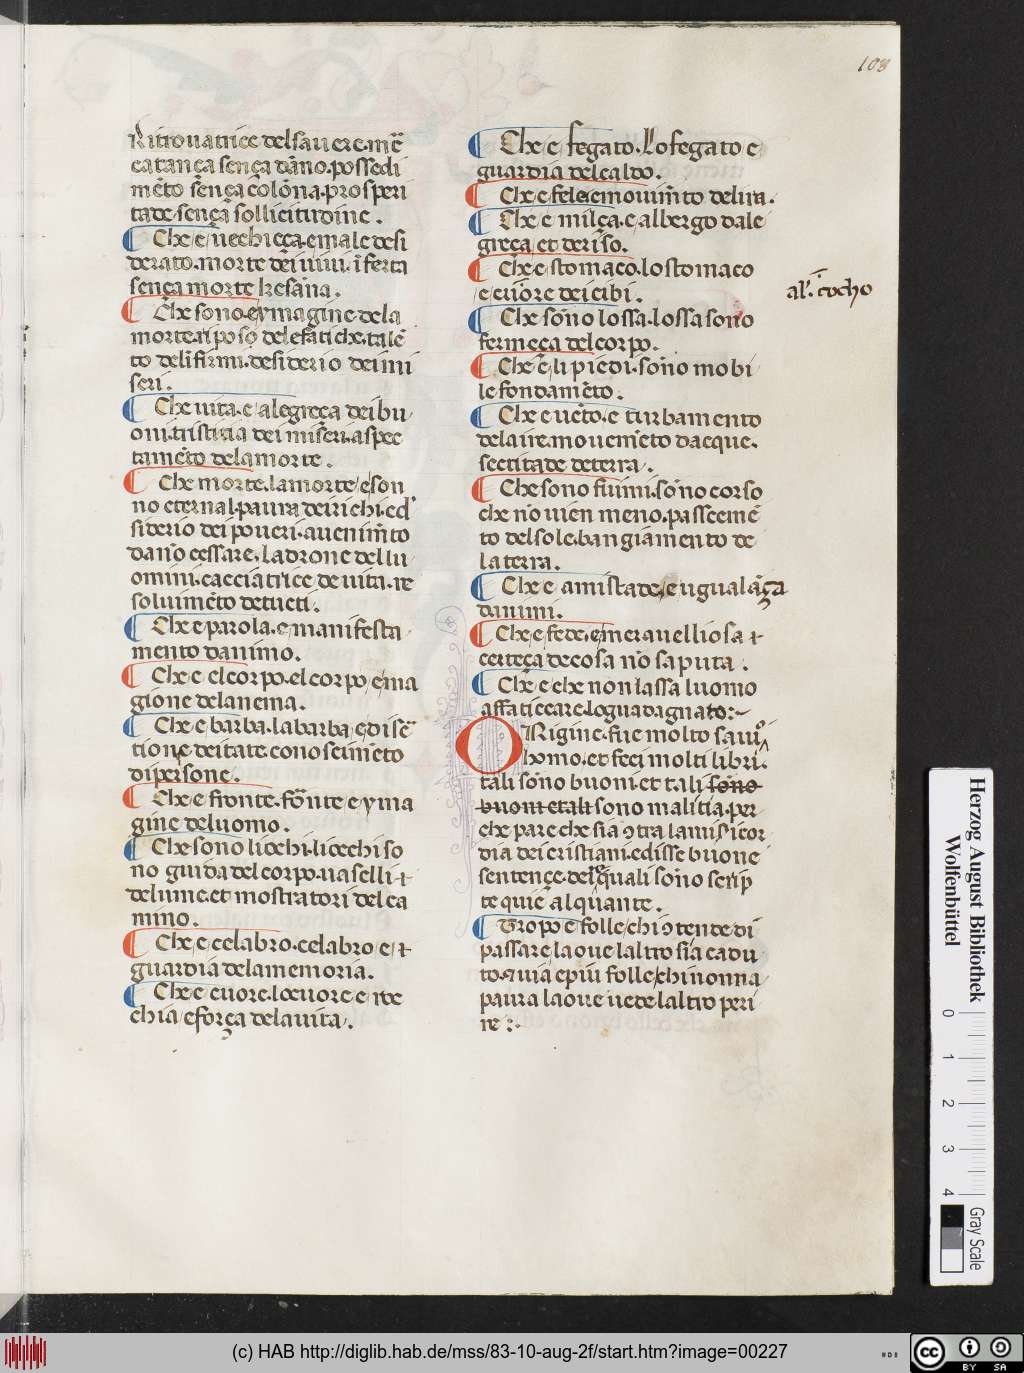 108
Ritrouatrice del sauere. mē
catança sença dāno. possedi
mēto sença colōna. prosperi
tade. sença sollicitudine.
Che e uechieça. e male desi
derato. morte dei uiui. īferta
sença morte kesana.
Che sono eymagine dela
morte. riposo dele fatiche. talē
to deli firmi. desiderio dei mi
seri.
Che uita. e alegreça dei bu
oni. tristicia dei miseri. aspec
tamēto dela morte.
Che morte. la morte e son
no eternal. paura dei richi. ed
siderio dei poueri. auenim̄to
da nō cessare. ladrone dellu
omini. cacciatrice de uita. re
soluimēto de tucti.
Che e parola. e manifesta
mento danimo.
Che e el corpo. el corpo e ma
gione delanema.
Che e barba. la barba e discē
tione deitate. conoscimēto
di persone.
Che e fronte. fronte e yma
gine deluomo.
Che sono li ochi. li occhi so
no guida del corpo. uaselli ⁊
de lume. et mostratori del ca
mino.
Che e celabro. celabro e ⁊
guardia dela memoria.
Che e cuore. lo cuore e roc
chia e força dela uita.
Che e fegato. Lo fegato e
guardia del caldo.
Che e fele. e mouim̄to de lira.
Che e milça. e albergo dale
greça et de riso.
Che e stomaco. lo stomaco
e cuore dei cibi.
al'. cocho
Che sono lossa. lossa sono
fermeça del corpo.
Che e li piedi. sono mobi
le fondamēto.
Che e uēto. e turbamento
delaire. mouemēto dacque.
sectitade de terra.
Che sono fiumi. sono corso
che nō uien meno. passcemē
to del sole. bangiamento de
la terra.
Che e amistade. e ugualāça
danimi.
Che e fede. e merauelliosa ⁊
certeça de cosa nō saputa.
Che e che non lassa luomo
affaticcare. lo guadagnato:~
ORigine. fue molto sauio
homo. et feci molti libri.
tali sono buoni et tali sono
buoni et ali sono malitia. per
che pare che sia ↄtra la misicor
dia dei cristiani. e disse buone
sentençe. dele quali sono scrip
te quie alquante.
Tropo e folle chi ↄtende di
passare la oue laltro sia cadu
to. ⁊ uia e piu folle chi nonna
paura la oue uede laltro peri
re:.
Herzog August Bibliothek
Wolfenbüttel
0 1 2 3 4
Gray Scale
(c) HAB http://diglib.hab.de/mss/83-10-aug-2f/start.htm?image=00227
cc BY SA